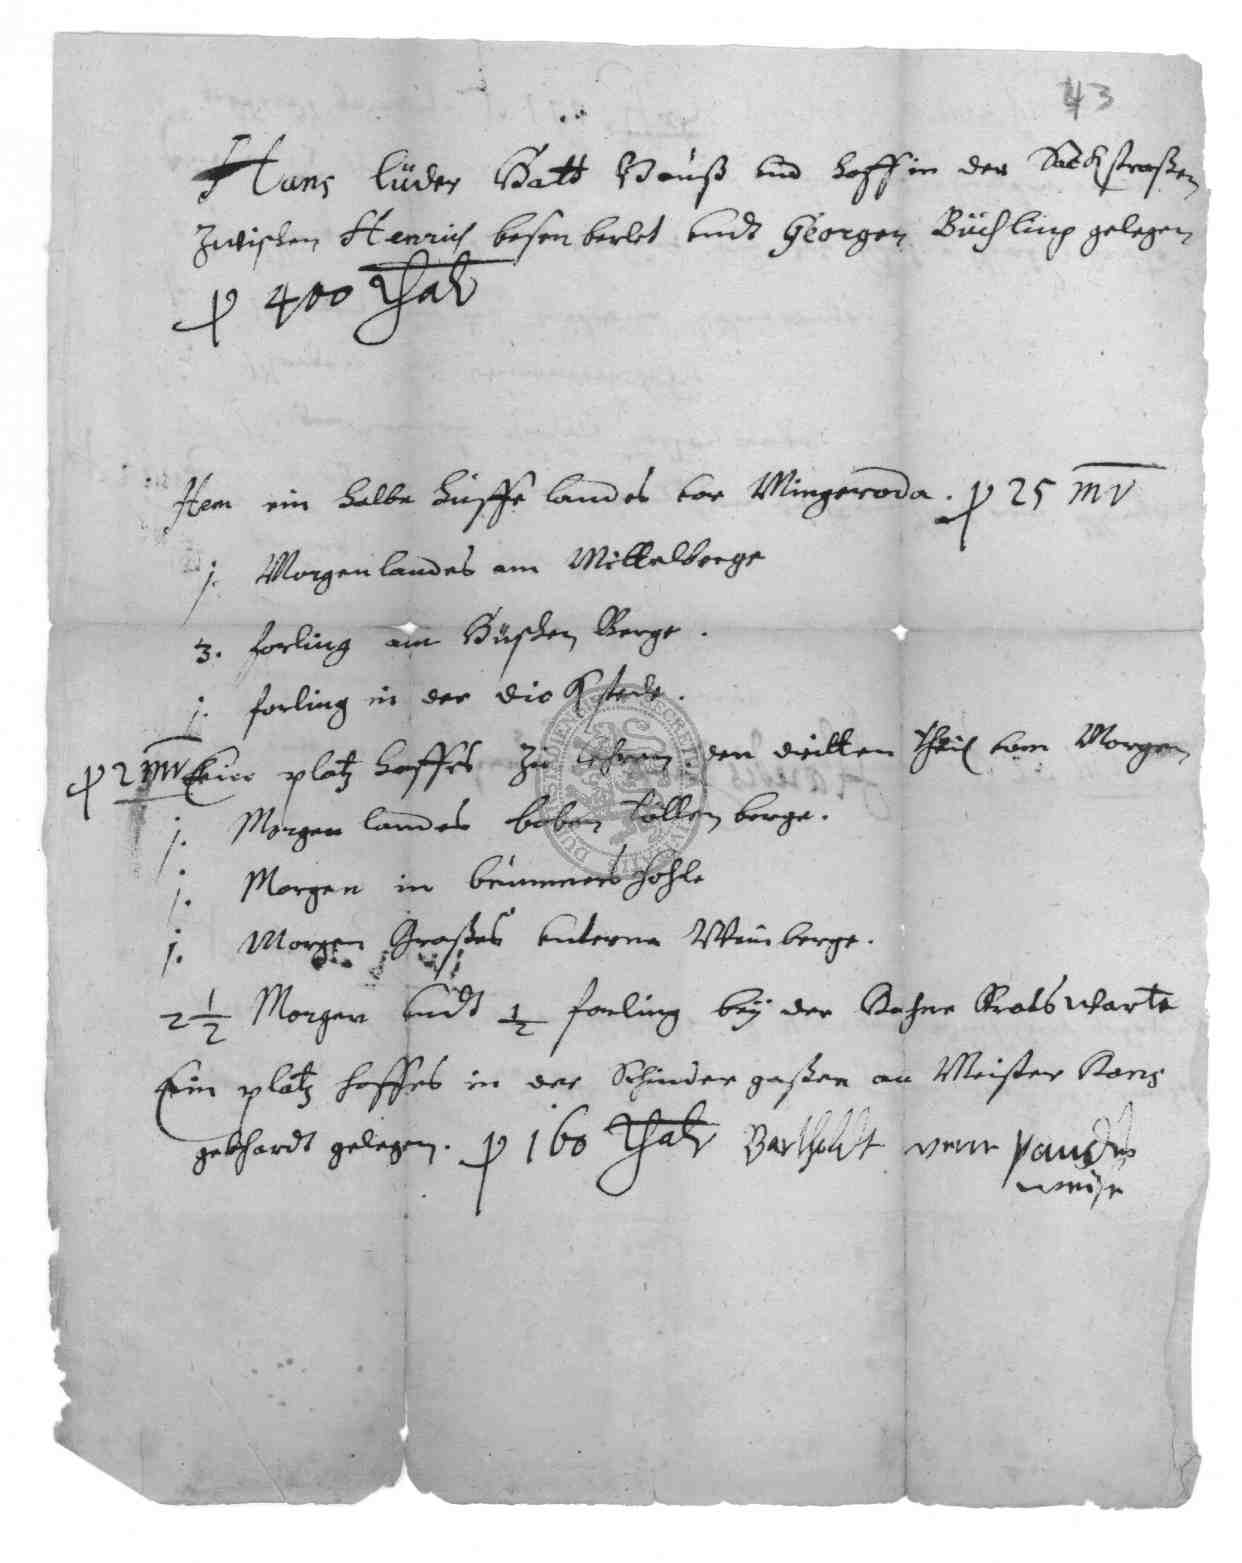 43
Hans Lüder Hatt Hauß und hoff in der Sackstraßen
Zwischen Henrich besenberlet undt Georgen Büchling gelegen
p 400 Thal
Item ein halbe huffe landes vor Mingeroda. p 25 mr
j. Morgen landes am Mittelberge
3. forling am Büschen Berge.
j. forling in der dickstede.
p 2 mr Einen platz hoffes Zu den dritten theil vom Morgen
j. Morgen landes boben Tollen berge.
j. Morgen in brummers hohle
j. Morgen Graßes unterm Winberge.
2 1/2 Morgen undt 1/2 forling bey der Rotswarte
Ein platz hoffes in der Schindergaßen an Meister Hans
gebhardt gelegen. p 160 Thal Bartholdt